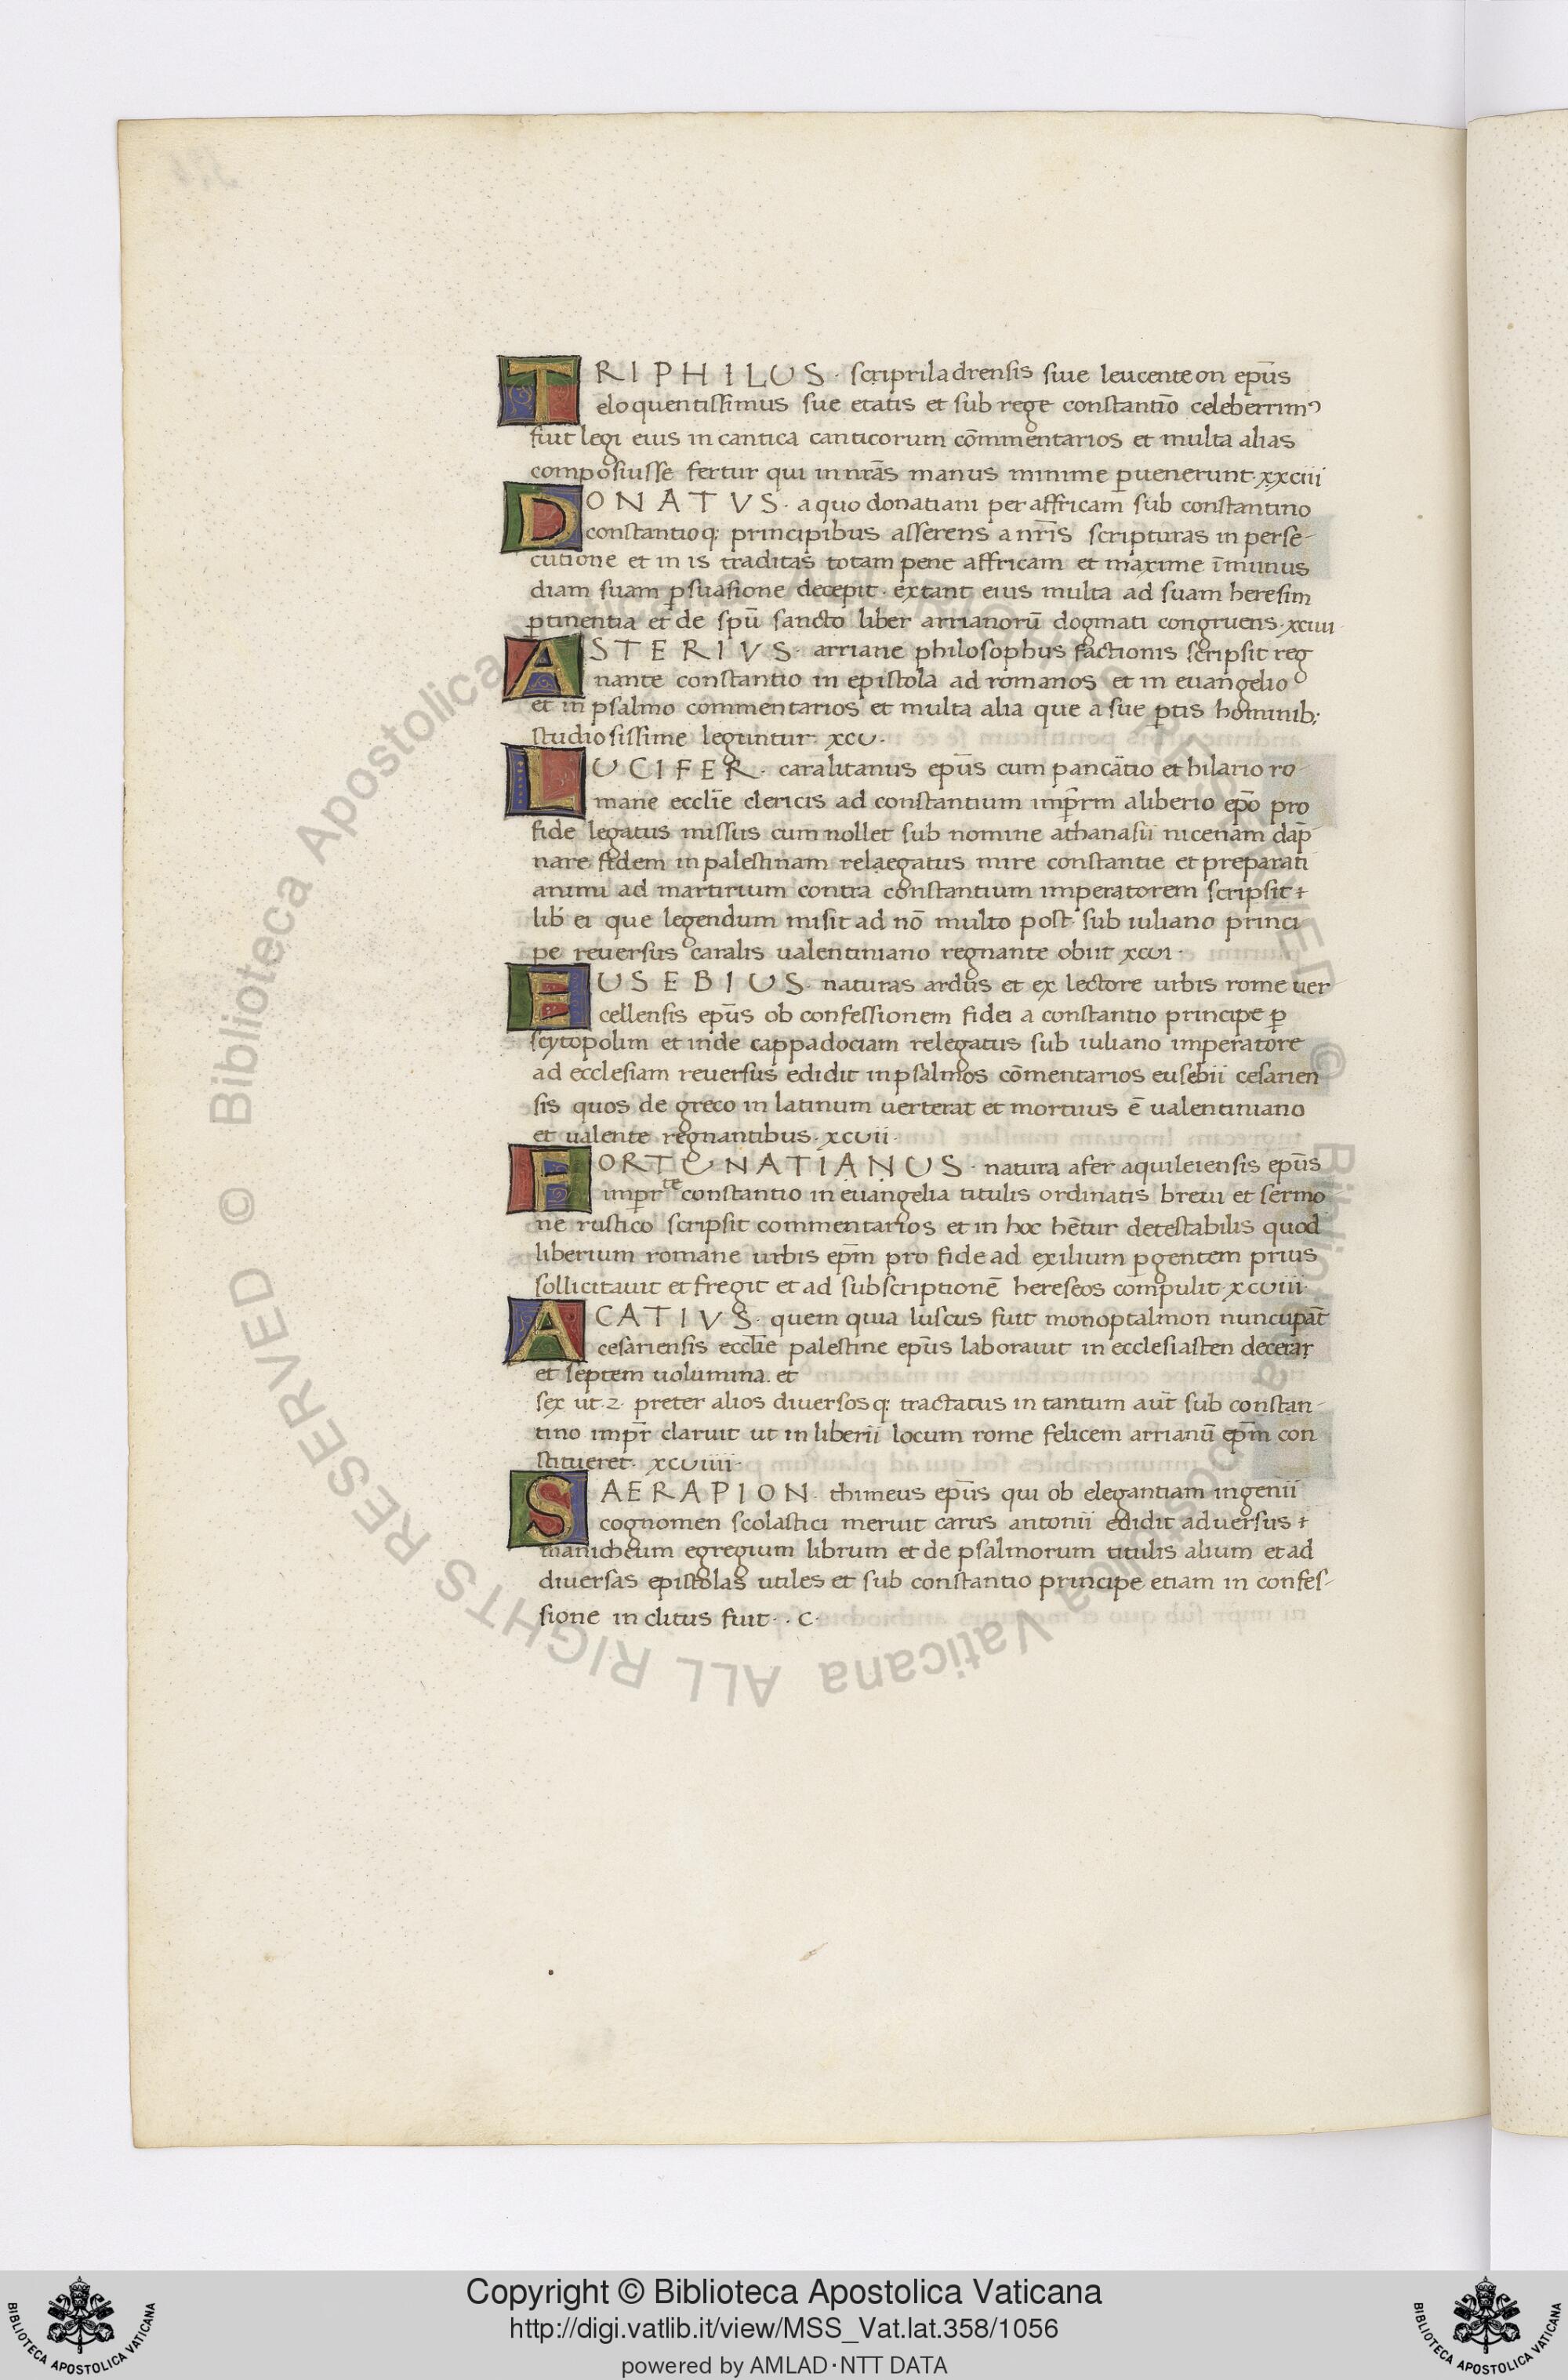 TRIPHILUS · scripriladrensis siue leucenteon ep̄us
eloquentissimus sue etatis et sub rege constantio celeberrimꝰ
fuit legi eius in cantica canticorum cōmmentarios et multa alias
composiusse fertur qui in nrās manus minime ꝑuenerunt · xxciii
DONATVS · a quo donatiani per affricam sub constantino
constantioq; principibus asserens a nrīs scripturas in perse-
cutione et in is traditas totam pene affricam et maxime īmunus
diam suam ꝑsuasione decepit · extant eius multa ad suam heresim
ꝑtinentia et de spū sancto liber arrianorū dogmati congruens · xciiii
ASTERIVS · arriane philosophus factionis scripsit reg
nante constantio in epistola ad romanos et in euangelio
et in psalmo commentarios et multa alia que a sue ꝑtis hominib;
studiosissime leguntur · xcv ·
LUCIFER · caralitanus ep̄us cum pancātio et hilario ro-
mane ecclīe clericis ad constantium imp̄rm a liberio ep̄o pro
fide legatus missus cum nollet sub nomine athanasii nicenam dap̄
nare fidem in palestinam relaegatus mire constantie et preparati
animi ad martirium contra constantium imperatorem scripsit ɫ
lib ei que legendum misit ad nō multo post sub iuliano princi
pe reuersus caralis ualentiniano regnante obiit xcvi ·
EUSEBIUS · naturas ardus et ex lectore urbis rome uer-
cellensis ep̄us ob confessionem fidei a constantio principe ꝑ
scytopolim et inde cappadociam relegatus sub iuliano imperatore
ad ecclesiam reuersus edidit in psalmos cōmentarios eusebii cesarien
sis quos de greco in latinum uerterat et mortuus ē ualentiniano
et ualente regnantibus · xcvii ·
FORTUNATIANUS · natura afer aquileiensis ep̄us
imp̄rte constantio in euangelia titulis ordinatis breui et sermo
ne rustico scripsit commentarios et in hoc hētur detestabilis quod
liberium romane urbis ep̄m pro fide ad exilium ꝑgentem prius
sollicitauit et fregit et ad subscriptionē hereseos compulit · xcviii ·
ACATIVS · quem quia luscus fuit monoptalmon nuncupāt
cesariensis ecclīe palestine ep̄us laborauit in ecclesiasten decerar
et septem uolumina · et
sex ut · 2 · preter alios diuersosq; tractatus in tantum aūt sub constan-
tino imp̄r claruit ut in liberii locum rome felicem arrianū ep̄m con
stitueret · xcviiii ·
SAERAPION · thimeus ep̄us qui ob elegantiam ingenii
cognomen scolastici meruit carus antonii edidit aduersus ɫ
manicheum egregium librum et de psalmorum titulis alium et ad
diuersas epistolas utiles et sub constantio principe etiam in confes-
sione inclitus fuit · · c ·
Biblioteca Apostolica Vaticana ALL RIGHTS RESERVED ©
Copyright © Biblioteca Apostolica Vaticana
http://digi.vatlib.it/view/MSS_Vat.lat.358/1056
powered by AMLAD·NTT DATA
BIBLIOTECA APOSTOLICA VATICANA
BIBLIOTECA APOSTOLICA VATICANA